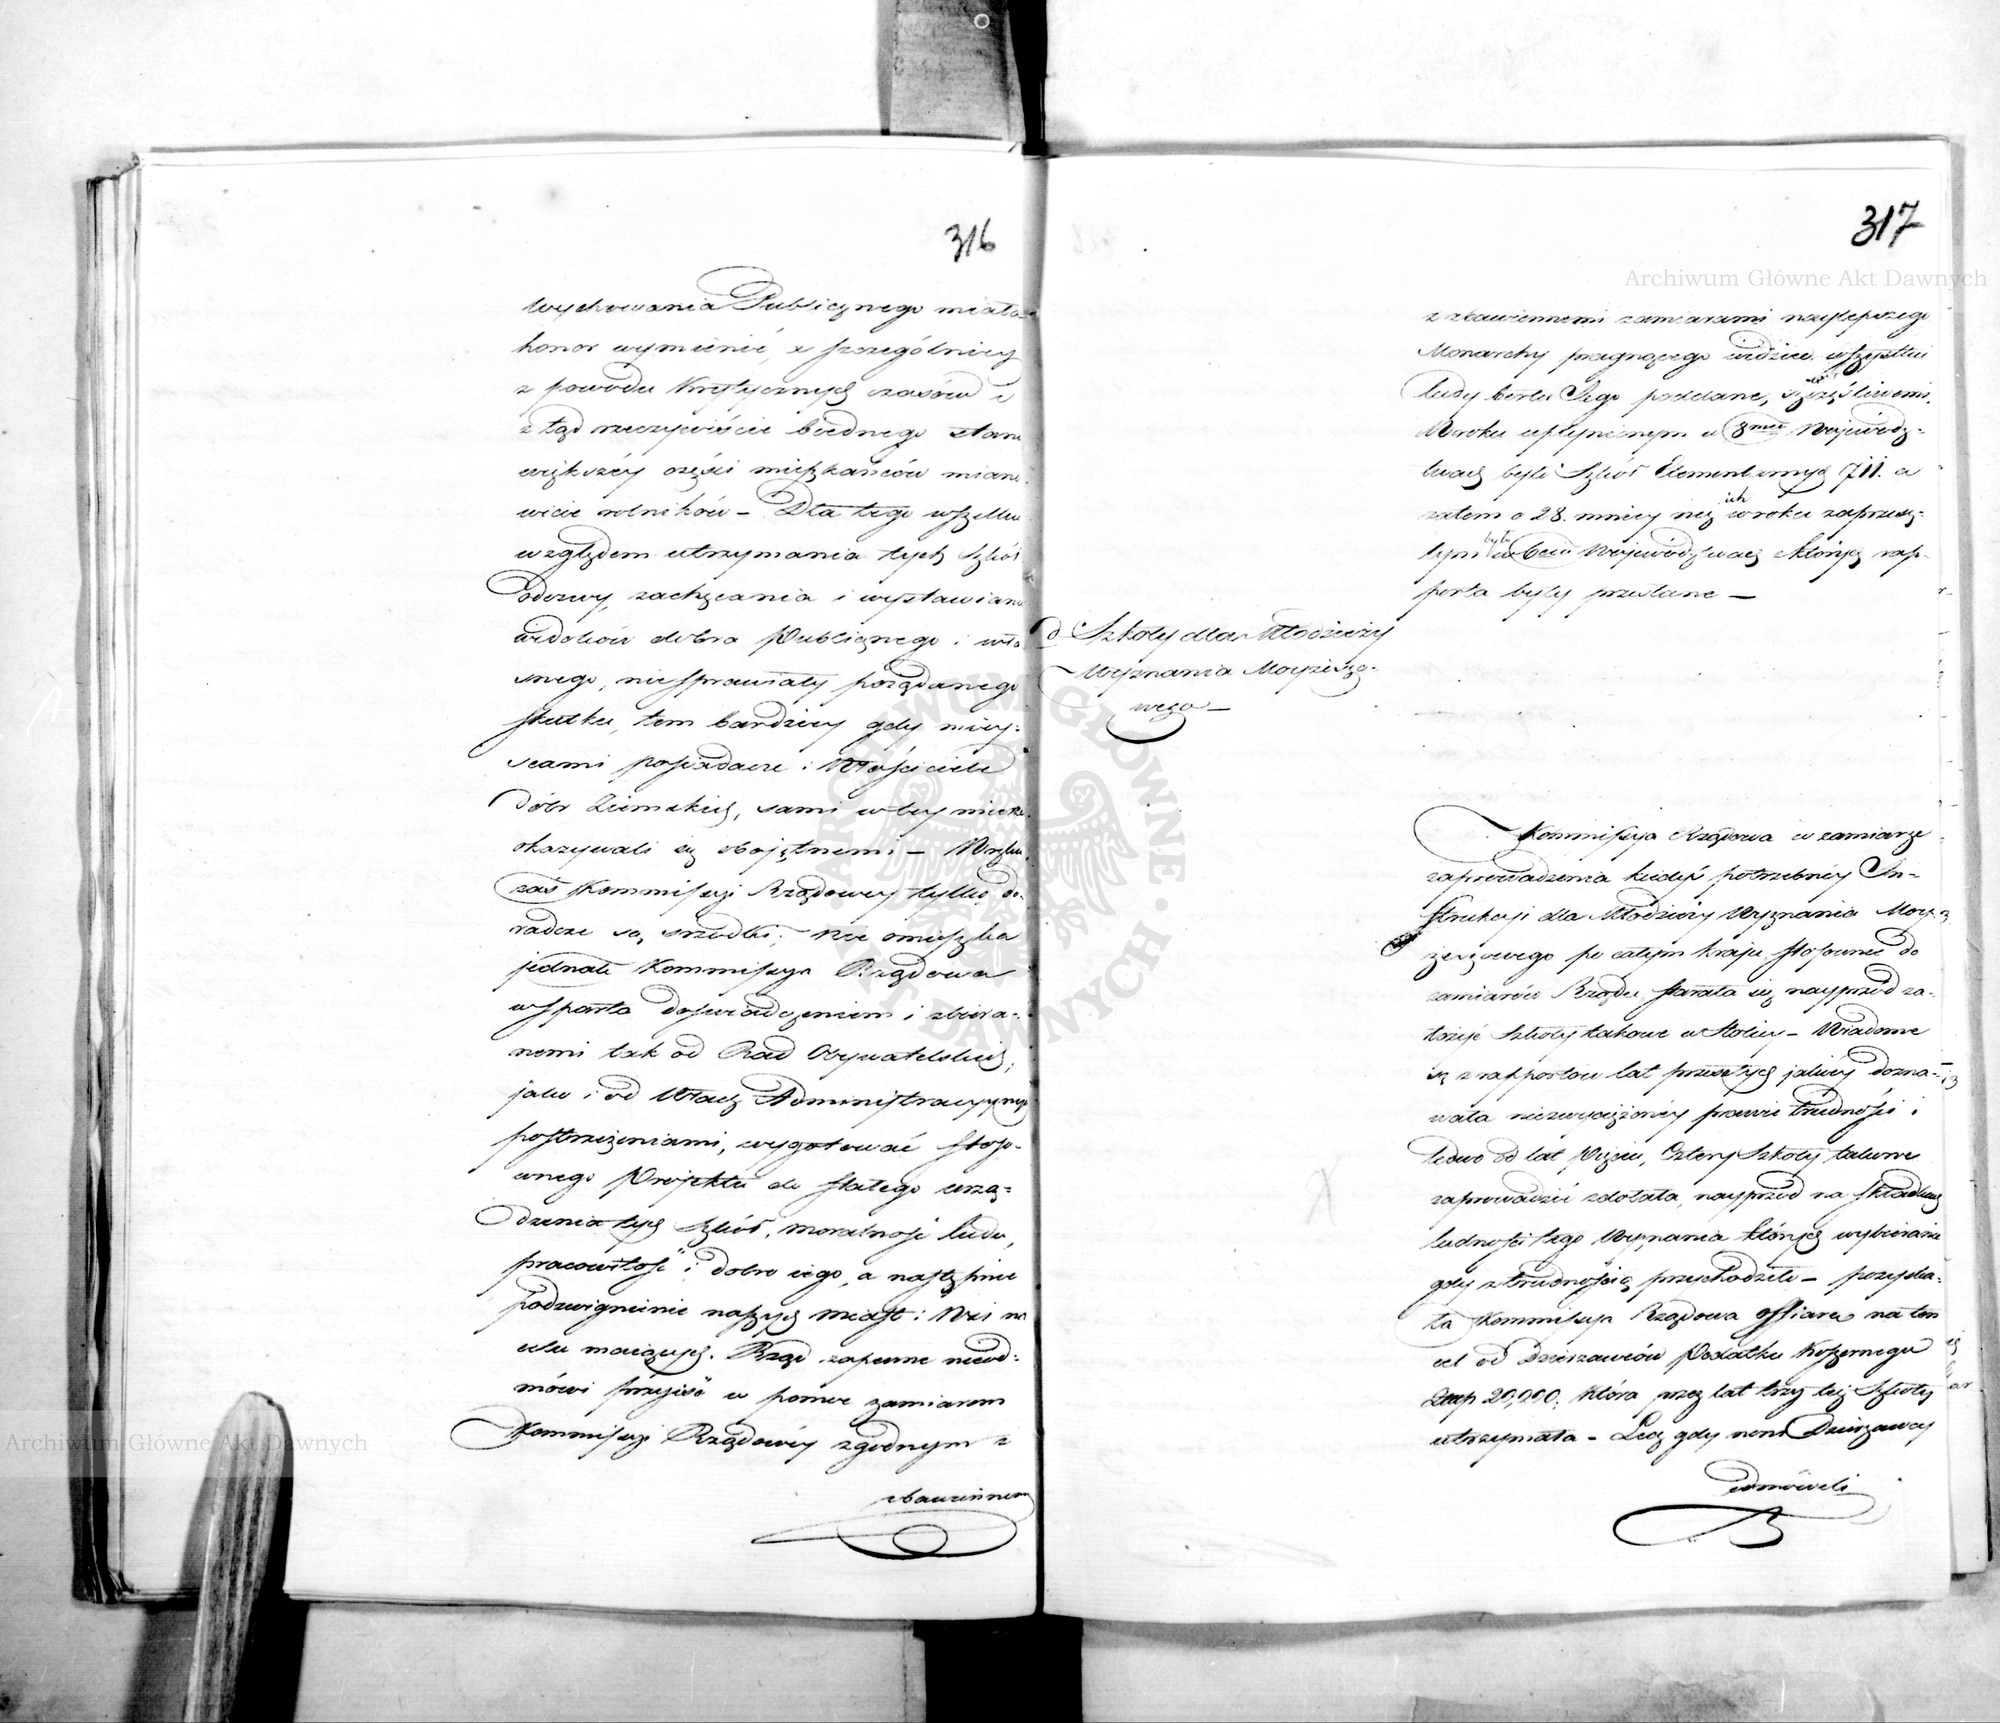 316
Wychowania Publicznego miała
honor wymienić, a szczególniey
z powodu Krytycznych czasów i
z tąd rzeczywiście biednego stanu
większéy części mieszkańców miano
wicie rolników – Dla tego wszelkie
względem utrzymania tych Szkół
odezwy, zachęcania i wystawiane
widoków dobra Publicznego i wła
snego, nie sprawiały pożądanego
skutku, tem bardziey gdy miey-
scami posiadacze i Właściciele
dóbr Ziemskich, sami w tey mierze
okazywali się obojętnemi –
zaś Kommissyi Rządowey tylko do-
radcze są srzodki; Nie omieszka
jednak Kommissya Rządowa
wsparta doświadczeniem i zbiera-
nemi tak od Rad Obywatelskich,
jako i od Władz Administracyjnych
postrzeżeniami, wygotować stoso-
wnego Projektu do stałego urzą-
dzenia tych Szkół, moralność ludu,
pracowitość i dobro iego, a następnie
podzwignienie naszych Miast i Wsi na
celu maiących. Rząd zapewne nieod-
mówi przyjść w pomoc zamiarom
Kommissyi Rządowéy zgodnym z
zbawiennemi
317
Archiwum Główne Akt Dawnych
z zbawiennemi zamiarami naylepszego
Monarchy pragnącego widzieć wszystkie
ludy berłu Jego poddane, szczęśliwemi.
W roku upłynionym w 8miu Wojewódz-
twach było Szkół Elementarnych 711. a
zatem o 28. mniey niż ich w roku zaprzesz-
łym było w Wojewódzwach z których rap-
porta były przesłane –
d Szkoły dla Młodzieży
Wyznania Moyżeszo-
wego –
Kommissya Rządowa w zamiarze
zaprowadzenia kiedyś potrzebnéy In-
strukcyi dla Młodzieży Wyznania Moy-
żeszowego po całym kraju stosownie do
zamiarów Rządu starała się nayprzód za-
łożyć Szkoły takowe w Stolicy – Wiadome
są z rapportów lat przeszłych jakiéy dozna-
wała niezwyciężonéy prawie trudności i
ledwo od lat Pięciu, Cztery Szkoły takowe
zaprowadzić zdołała, nayprzód na składkach
ludności tego Wyznania których wybieranie
gdy z trudnością przychodziło – pozyska-
ła Kommissya Rządowa offiarę na ten
cel od Dzierżawców Podatku Koszernego
Złnp 20,000. która przez lat trzy też Szkoły
utrzymała – Lecz gdy nowi Dzierżawcy
odmówili
Archiwum Główne Akt Dawnych
ARCHIWUM GŁÓWNE AKT DAWNYCH